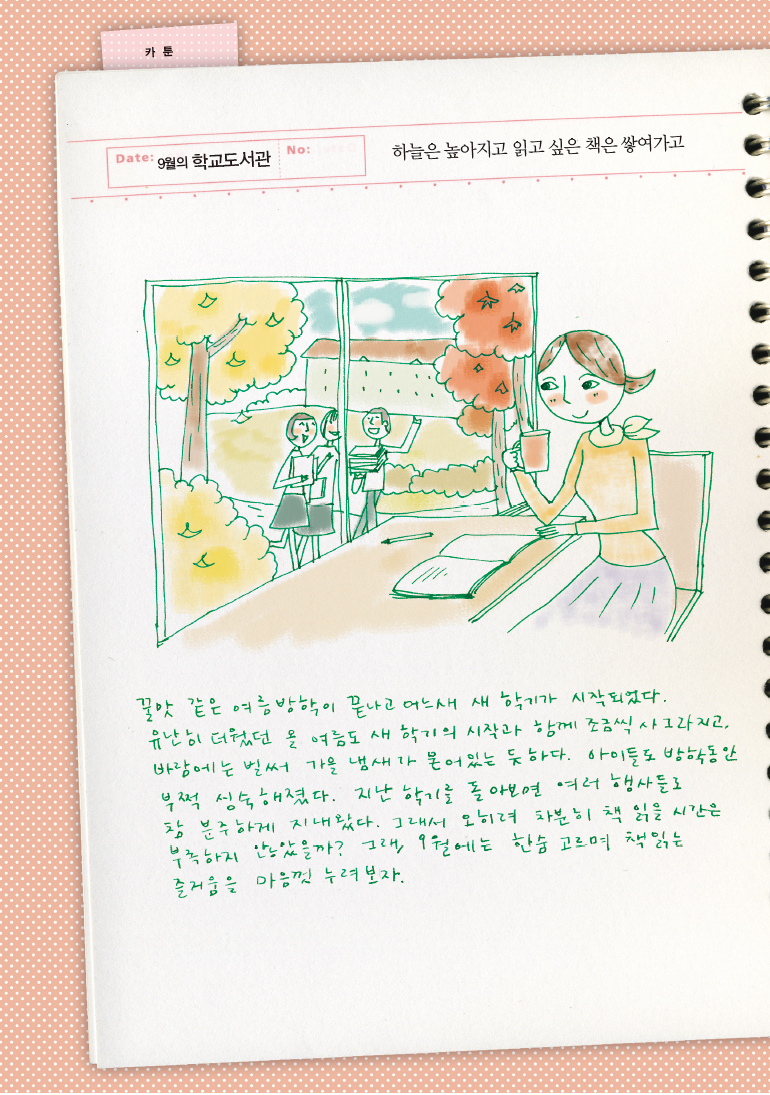 카 툰
Date: 9월의 학교도서관 No:
하늘은 높아지고 읽고 싶은 책은 쌓여가고
꿀맛 같은 여름방학이 끝나고 어느새 새 학기가 시작되었다.
유난히 더웠던 올 여름도 새 학기의 시작과 함께 조금씩 사그라지고,
바람에는 벌써 가을 냄새가 묻어있는 듯하다. 아이들도 방학동안
부쩍 성숙해졌다. 지난 학기를 돌아보면 여러 행사들로
참 분주하게 지내왔다. 그래서 오히려 차분히 책 읽을 시간은
부족하지 않았을까? 그래, 9월에는 한숨 고르며 책 읽는
즐거움을 마음껏 누려보자.